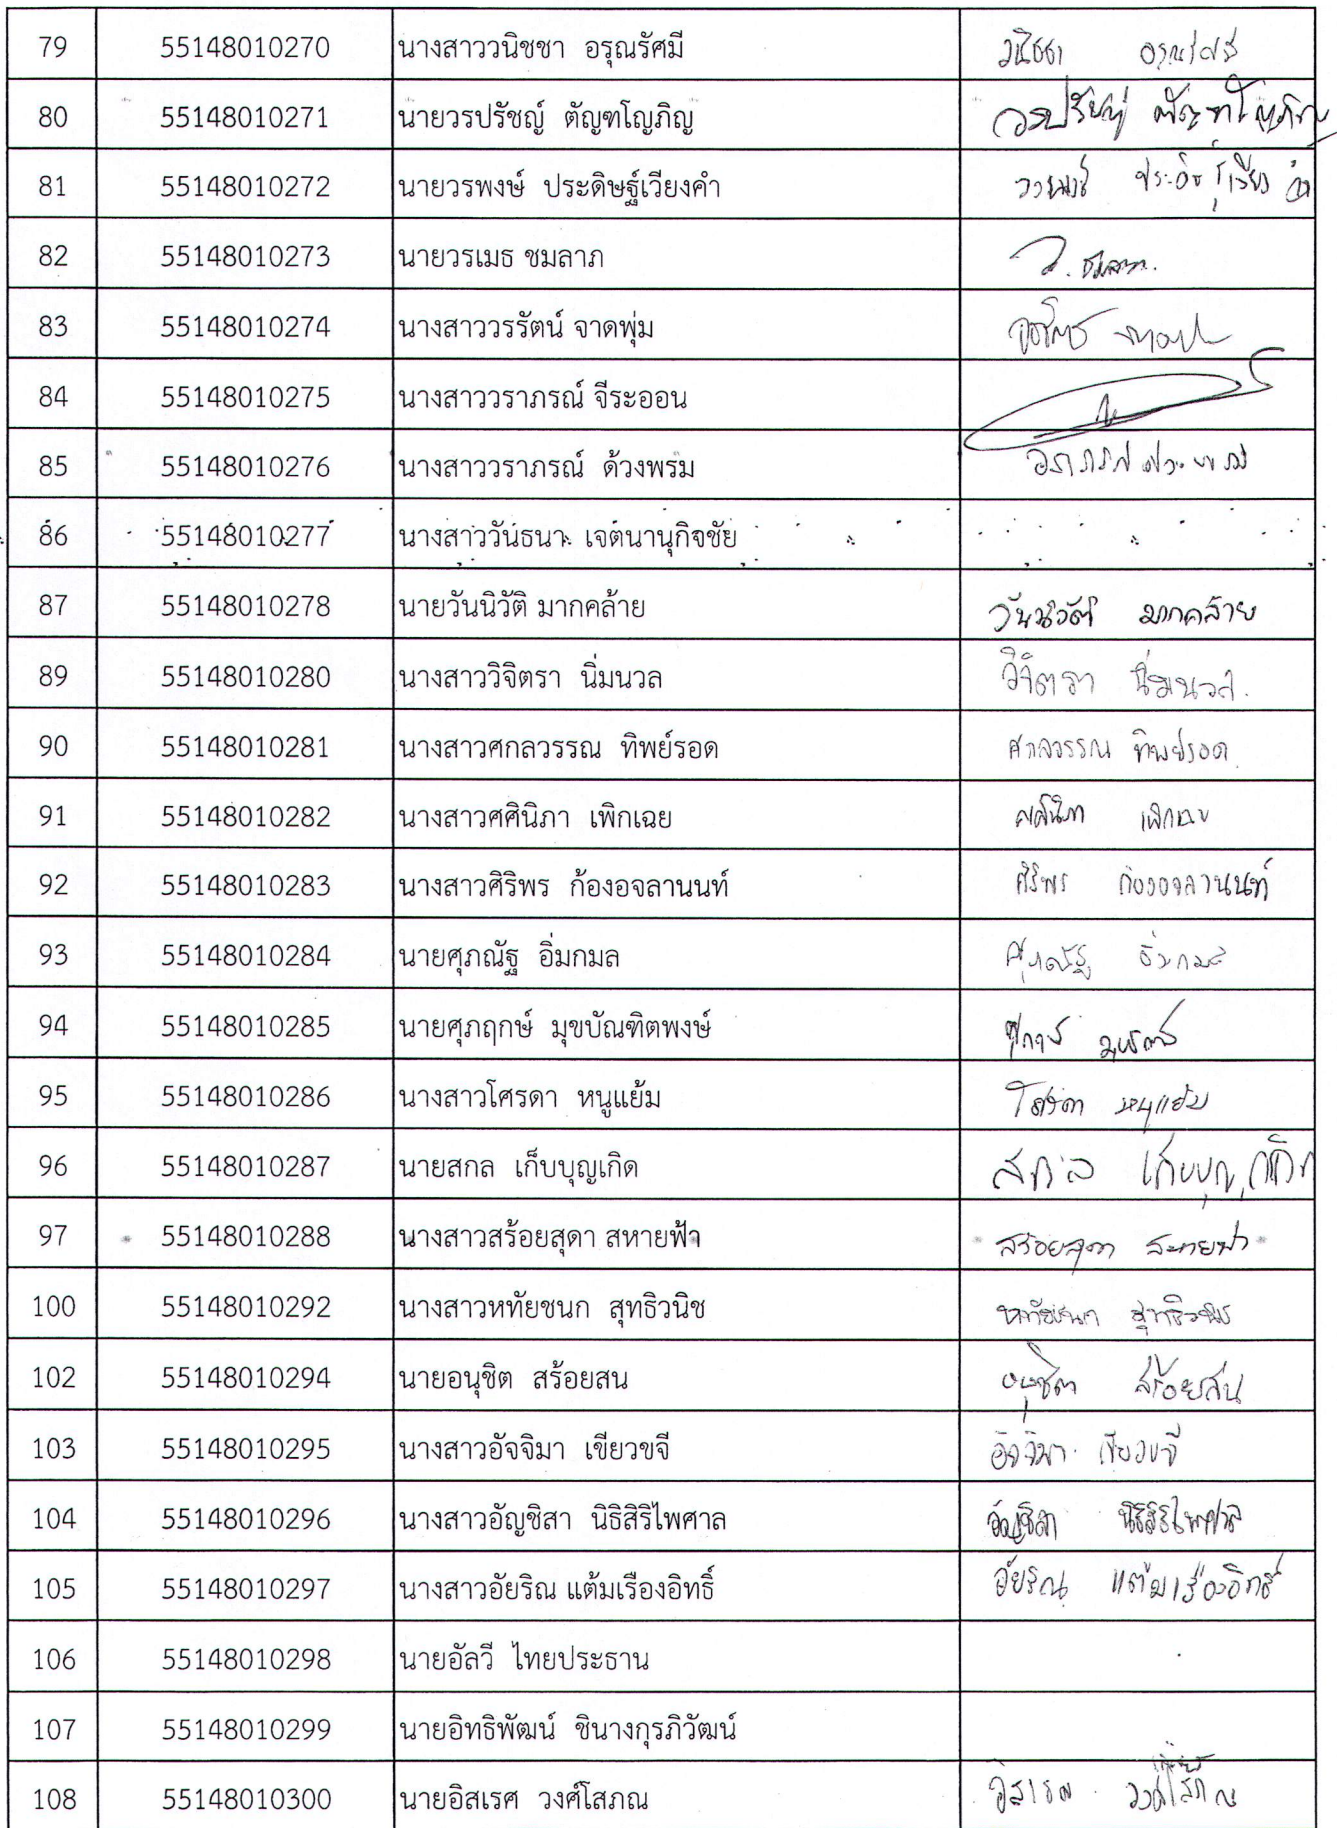 79 55148010270 นางสาววนิชชา อรุณรัศมี วนิชชา
80 55148010271 นายวรปรัชญ์ ตัญฑโญภิญ วรปรัชญ์ ตัญฑโญภิญ
81 55148010272 นายวรพงษ์ ประดิษฐ์เวียงคำ วรพงษ์ ประดิษฐ์เวียงคำ
82 55148010273 นายวรเมธ ชมลาภ ว. ชมลาภ.
83 55148010274 นางสาววรรัตน์ จาดพุ่ม
84 55148010275 นางสาววราภรณ์ จีระออน
85 55148010276 นางสาววราภรณ์ ด้วงพรม วราภรณ์
86 55148010277 นางสาววันธนา เจตนานุกิจชัย
87 55148010278 นายวันนิวัติ มากคล้าย วันนิวัติ มากคล้าย
89 55148010280 นางสาววิจิตรา นิ่มนวล วิจิตรา นิ่มนวล.
90 55148010281 นางสาวศกลวรรณ ทิพย์รอด ศกลวรรณ ทิพย์รอด
91 55148010282 นางสาวศศินิภา เพิกเฉย ศศินิภา เพิกเฉย
92 55148010283 นางสาวศิริพร ก้องอจลานนท์ ศิริพร ก้องอจลานนท์
93 55148010284 นายศุภณัฐ อิ่มกมล ศุภณัฐ อิ่มกมล
94 55148010285 นายศุภฤกษ์ มุขบัณฑิตพงษ์
95 55148010286 นางสาวโศรดา หนูแย้ม โศรดา หนูแย้ม
96 55148010287 นายสกล เก็บบุญเกิด สกล เก็บบุญเกิด
97 55148010288 นางสาวสร้อยสุดา สหายฟ้า สร้อยสุดา สหายฟ้า
100 55148010292 นางสาวหทัยชนก สุทธิวนิช หทัยชนก สุทธิวนิช
102 55148010294 นายอนุชิต สร้อยสน อนุชิต สร้อยสน
103 55148010295 นางสาวอัจจิมา เขียวขจี อัจจิมา เขียวขจี
104 55148010296 นางสาวอัญชิสา นิธิสิริไพศาล อัญชิสา นิธิสิริไพศาล
105 55148010297 นางสาวอัยริณ แต้มเรืองอิทธิ์ อัยริณ แต้มเรืองอิทธิ์
106 55148010298 นายอัลวี ไทยประธาน
107 55148010299 นายอิทธิพัฒน์ ชินางกุรภิวัฒน์
108 55148010300 นายอิสเรศ วงศ์โสภณ อิสเรศ วงศ์โสภณ